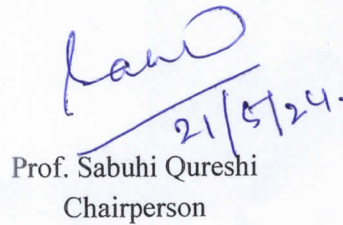 21/5/24.
Prof. Sabuhi Qureshi
Chairperson